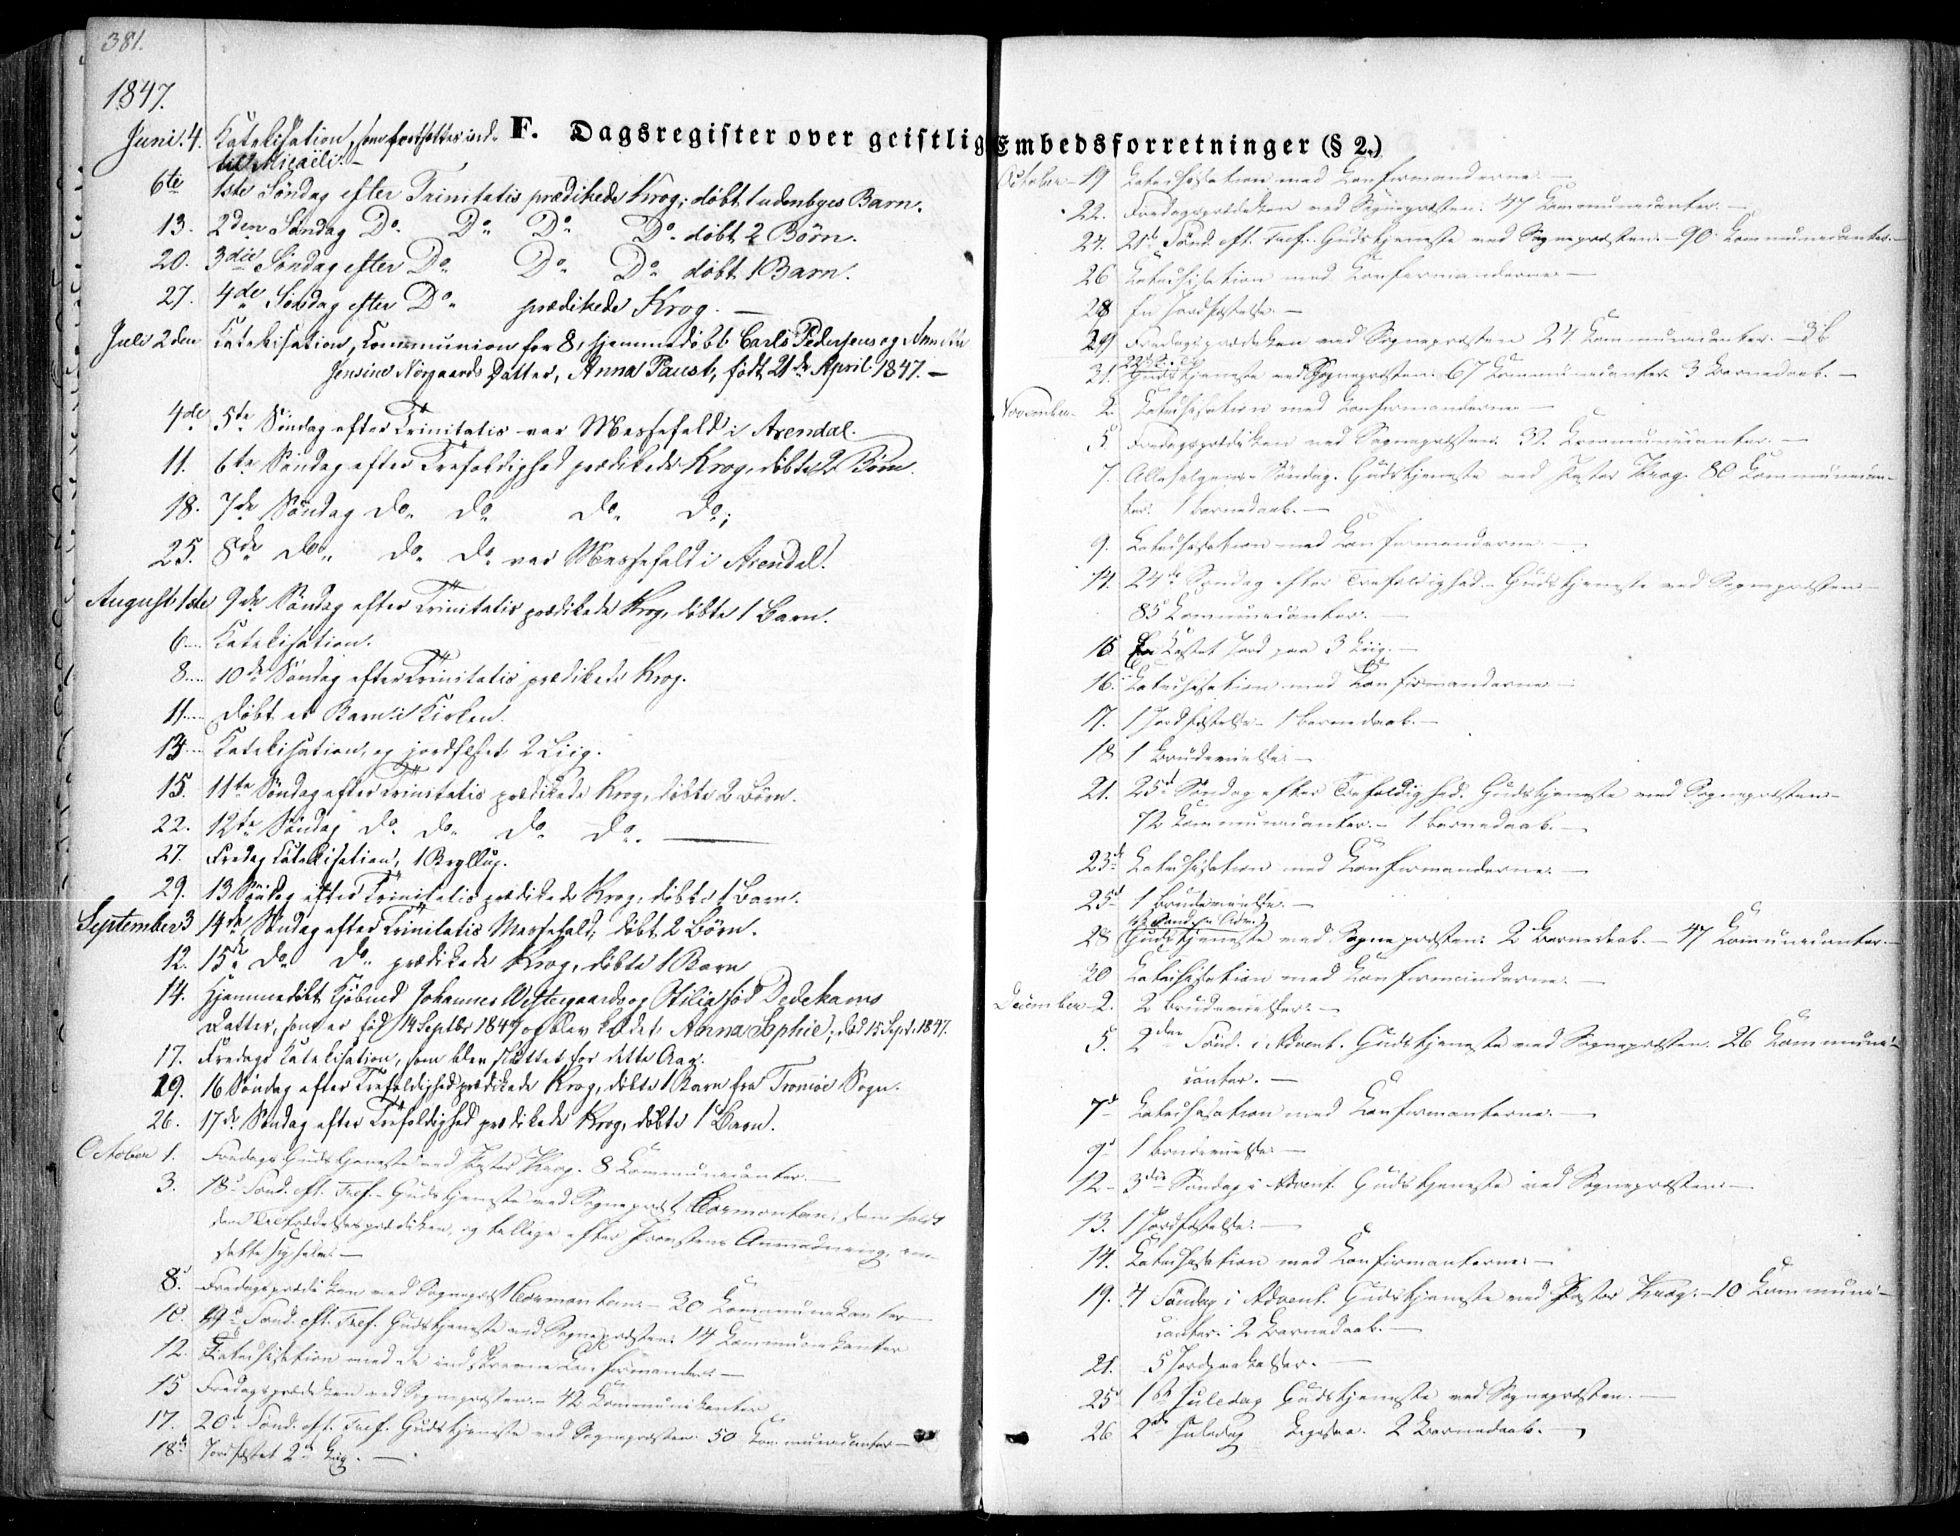 381.
1847.
F. Dagsregister over geistlig Embedsforretninger (§ 2.)
Juni. 4. Katekisation, som fortsættes ind-
til Micaëli. —
6te 1ste Søndag efter Trinitatis prædikede Krog; døbt 1 udenbyes Barn.
13. 2den Søndag Do. Do Do Do. døbt 2 Børn.
20. 3die Søndag efter Do. Do. Do. døbt 1 Barn.
27. 4de Søndag efter Do. prædikede Krog. —
Juli 2den Katekisation, Communion for 8, hjemmedøbt Carls Pedersens og
Jensine Nörgaards Datter, Anna Paust, født 21de April 1847. —
4de 5te Søndag efter Trinitatis var Messefald i Arendal.
11. 6te Søndag efter Trefoldighed prædikede Krog, døbte 2 Børn.
18. 7de Søndag do. do do. do.;
25. 8de do. do. do. var Messefald i Arendal.
August 1ste 9de Søndag efter Trinitatis prædikede Krog, døbte 1 Barn.
6.... Katekisation.
8.... 10de Søndag efter Trinitatis prædikede Krog.
11.... døbt et Barn i Kirken.
13.... Katekisation, og jordfæstet 2 Liig.
15. 11te Søndag efter Trinitatis prædikede Krog, døbte 2 Børn.
22. 12te Søndag do. do. do. do. —
27. Fredag Katekisation, 1 Bryllup.
29. 13 Søndag efter Trinitatis prædikede Krog, døbte 1 Barn.
September 3 14de Søndag efter Trinitatis Messefald, døbt 2 Börn.
12. 15de do. do. prædikede Krog, døbte 1 Barn
14. Hjemmedøbt Kjøbmd Johannes Westergaards og Otilia fød Dedekams
Datter, som er fød 14 Septbr 1847 og blev kaldet Anna Sophie; død 15 Sept. 1847.
17. Fredags Katekisation, som blev sluttet for dette Aar.
19. 16 Søndag efter Trefoldighed prædikede Krog, døbte 1 Barn fra Tromöe Sogn.
26. 17de Søndag efter Trefoldighed prædikede Krog, døbte 1 Barn.
October 1. Fredags Gudstjeneste ved Pastor Krog. 8 Kommunicanter. —
3. 18de Sønd. eft. Tref. Gudstjeneste ved Sognepræst, som holdt
den Tiltrædelsesprædiken, og tillige efter Provstens Anmodning, om
dette. —
8. Fredagsprædiken ved Sognepræst — 30 Kommunikanter
10. 19de Sønd. eft. Tref. Gudstjeneste ved Sognepræsten. 14 Kommunikanter
12. Katechisation med de indskrevne Konfirmander. —
15 Fredagsprædiken ved Sognepræsten. — 42 Kommunikanter
17. 20de Sønd. eft. Tref. Gudstjeneste ved Sognepræsten. 50 Kommunicanter —
18de Jordfæstet 2de Liig. —
October — 19 Katechisation med Konfirmanderne. —
22. Fredagsprædiken ved Sognepræsten. 47 Kommunicanter. —
24. 21de Sønd. eft. Tref. Gudstjeneste ved Sognepræsten. — 90 Kommunicanter. —
26 Katechisation med Konfirmanderne. —
28 En Jordfæstelse. —
29 Fredagsprædiken ved Sognepræsten 24 Kommunicanter. —
31. Gudstjeneste ved Sognepræsten. 67 Kommunicanter 3 Barnedaab. —
November. 2. Katechisation med Konfirmanderne —
5. Fredagsprædiken ved Sognepræsten. 32 Kommunicanter. —
7. Allehelgens-Søndag. Gudstjeneste ved Pastor Krog. 80 Kommunican-
ter. 1 Barnedaab. —
9. Katechisation med Konfirmanderne. —
14. 24de Søndag efter Trefoldighed. — Gudstjeneste ved Sognepræsten —
85 Kommunicanter. —
15 Kastet Jord paa 3 Liig. —
16. Katechisation med Konfirmanderne —
17. 1 Jordfæstelse — 1 Barnedaab. —
18 1 Brudevielse. —
21. 25de Søndag efter Trefoldighed. Gudstjeneste ved Sognepræsten —
72 Kommunicanter. — 1 Barnedaab. —
23de Katechisation med Konfirmanderne. —
25de 1 Brudevielse. —
28 Gudstjeneste ved Sognepræsten. 2 Barnedaab. — 47 Kommunicanter. —
30 Katechisation med Konfirmanderne. —
December 2. 2 Brudevielser. —
5. 2den Sønd. i Advent. Gudstjeneste ved Sognepræsten. 26 Kommuni-
canter. —
7de Katechisation med Konfirmanterne. —
9de 1 Brudevielse —
12 — 3die Søndag i Advent. Gudstjeneste ved Sognepræsten. —
13. 1 Jordfæstelse. —
14. Katechisation med Konfirmanterne. —
19. 4 Søndag i Advent. Gudstjeneste ved Pastor Krog. — 10 Kommuni-
canter. 2 Barnedaab. —
21. 5 Jordpaakastelser. —
25de 1ste Juledag Gudstjeneste ved Sognepræsten. —
26 2de Juledag Ligesaa. 2 Barnedaab. —